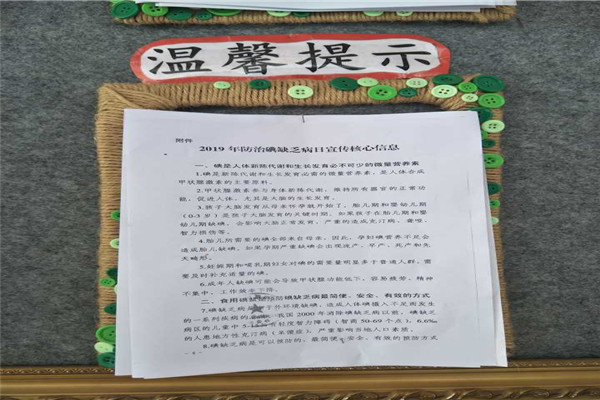 温馨提示
附件
2019 年防治碘缺乏病日宣传核心信息
一、碘是人体新陈代谢和生长发育必不可少的微量营养素
1.碘是新陈代谢和生长发育必需的微量营养素，是人体合成
甲状腺激素的主要原料。
2.甲状腺激素参与身体新陈代谢，维持所有器官的正常功
能，促进人体，尤其是大脑的生长发育。
3.孩子大脑发育从母亲怀孕就开始了，胎儿期和婴幼儿期
(0-3岁）是孩子大脑发育的关键时期，如果孩子在胎儿期和婴
幼儿期缺碘，会影响大脑正常发育，严重的造成克汀病、聋哑、
智力损伤等。
4.胎儿所需要的碘全部来自母亲，因此，孕妇碘营养不足会
造成胎儿缺碘。如果孕期严重缺碘会出现流产、早产、死产和先
天畸形。
5.妊娠期和哺乳期妇女对碘的需要量明显多于普通人群，需
要及时补充适量的碘。
6.成年人缺碘可能会导致甲状腺功能低下，容易疲劳、精神
不集中、工作效率下降。
二、食用碘盐是预防碘缺乏病最简便、安全、有效的方式
7.碘缺乏病是由于外环境缺碘，造成人体碘摄入不足而发生
的一系列疾病的总称。我国 2000 年消除碘缺乏病以前，碘缺乏
病区的儿童中 5-15%有轻度智力障碍（智商 50-69 个点），6.6‰
的人患地方性克汀病（呆傻症），严重影响当地人口素质。
8.碘缺乏病是可以预防的，最简便、安全、有效的预防方式